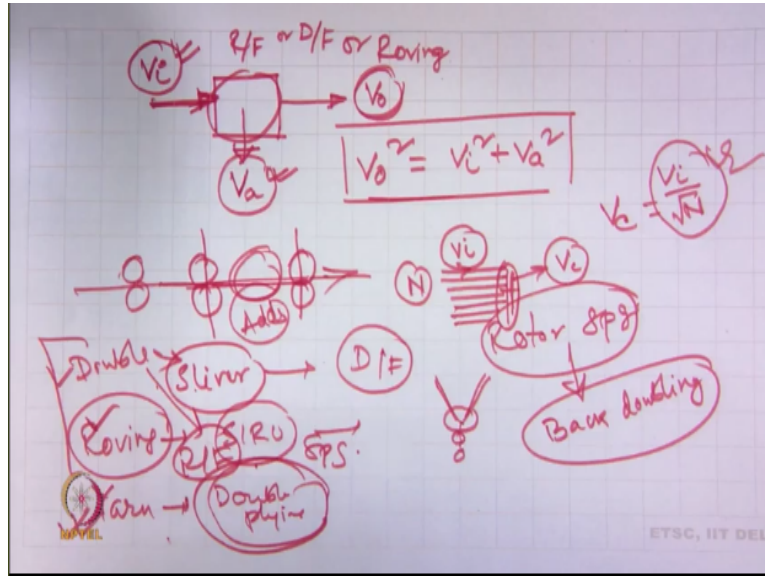 R/F or D/F or Roving
Vi
Vo
Va
Vo² = Vi² + Va²
Vc = Vi/√N
N
Vi
Vc
Add
Rotor sps
Back doubling
Double
Sliver
D/F
Roving
R/F
SIRO
sps.
Yarn
Double plying
NPTEL
ETSC, IIT DEL